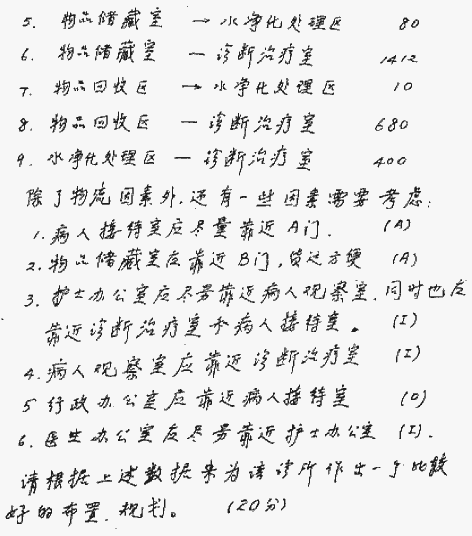 5. 物品储藏室 → 水净化处理区 80
6. 物品储藏室 — 诊断治疗室 1412
7. 物品回收区 → 水净化处理区 10
8. 物品回收区 — 诊断治疗室 680
9. 水净化处理区 — 诊断治疗室 400
除了物流因素外,还有一些因素需要考虑:
1. 病人接待室应尽量靠近A门. (A)
2. 物品储藏室应靠近B门, 方便 (A)
3. 护士办公室应尽量靠近病人观察室,同时也应
靠近诊断治疗室和病人接待室。 (I)
4. 病人观察室应靠近诊断治疗室 (I)
5 行政办公室应靠近病人接待室 (O)
6. 医生办公室应尽量靠近护士办公室 (I).
请根据上述数据来为该诊所作出一个比较
好的布置.规划。 (20分)